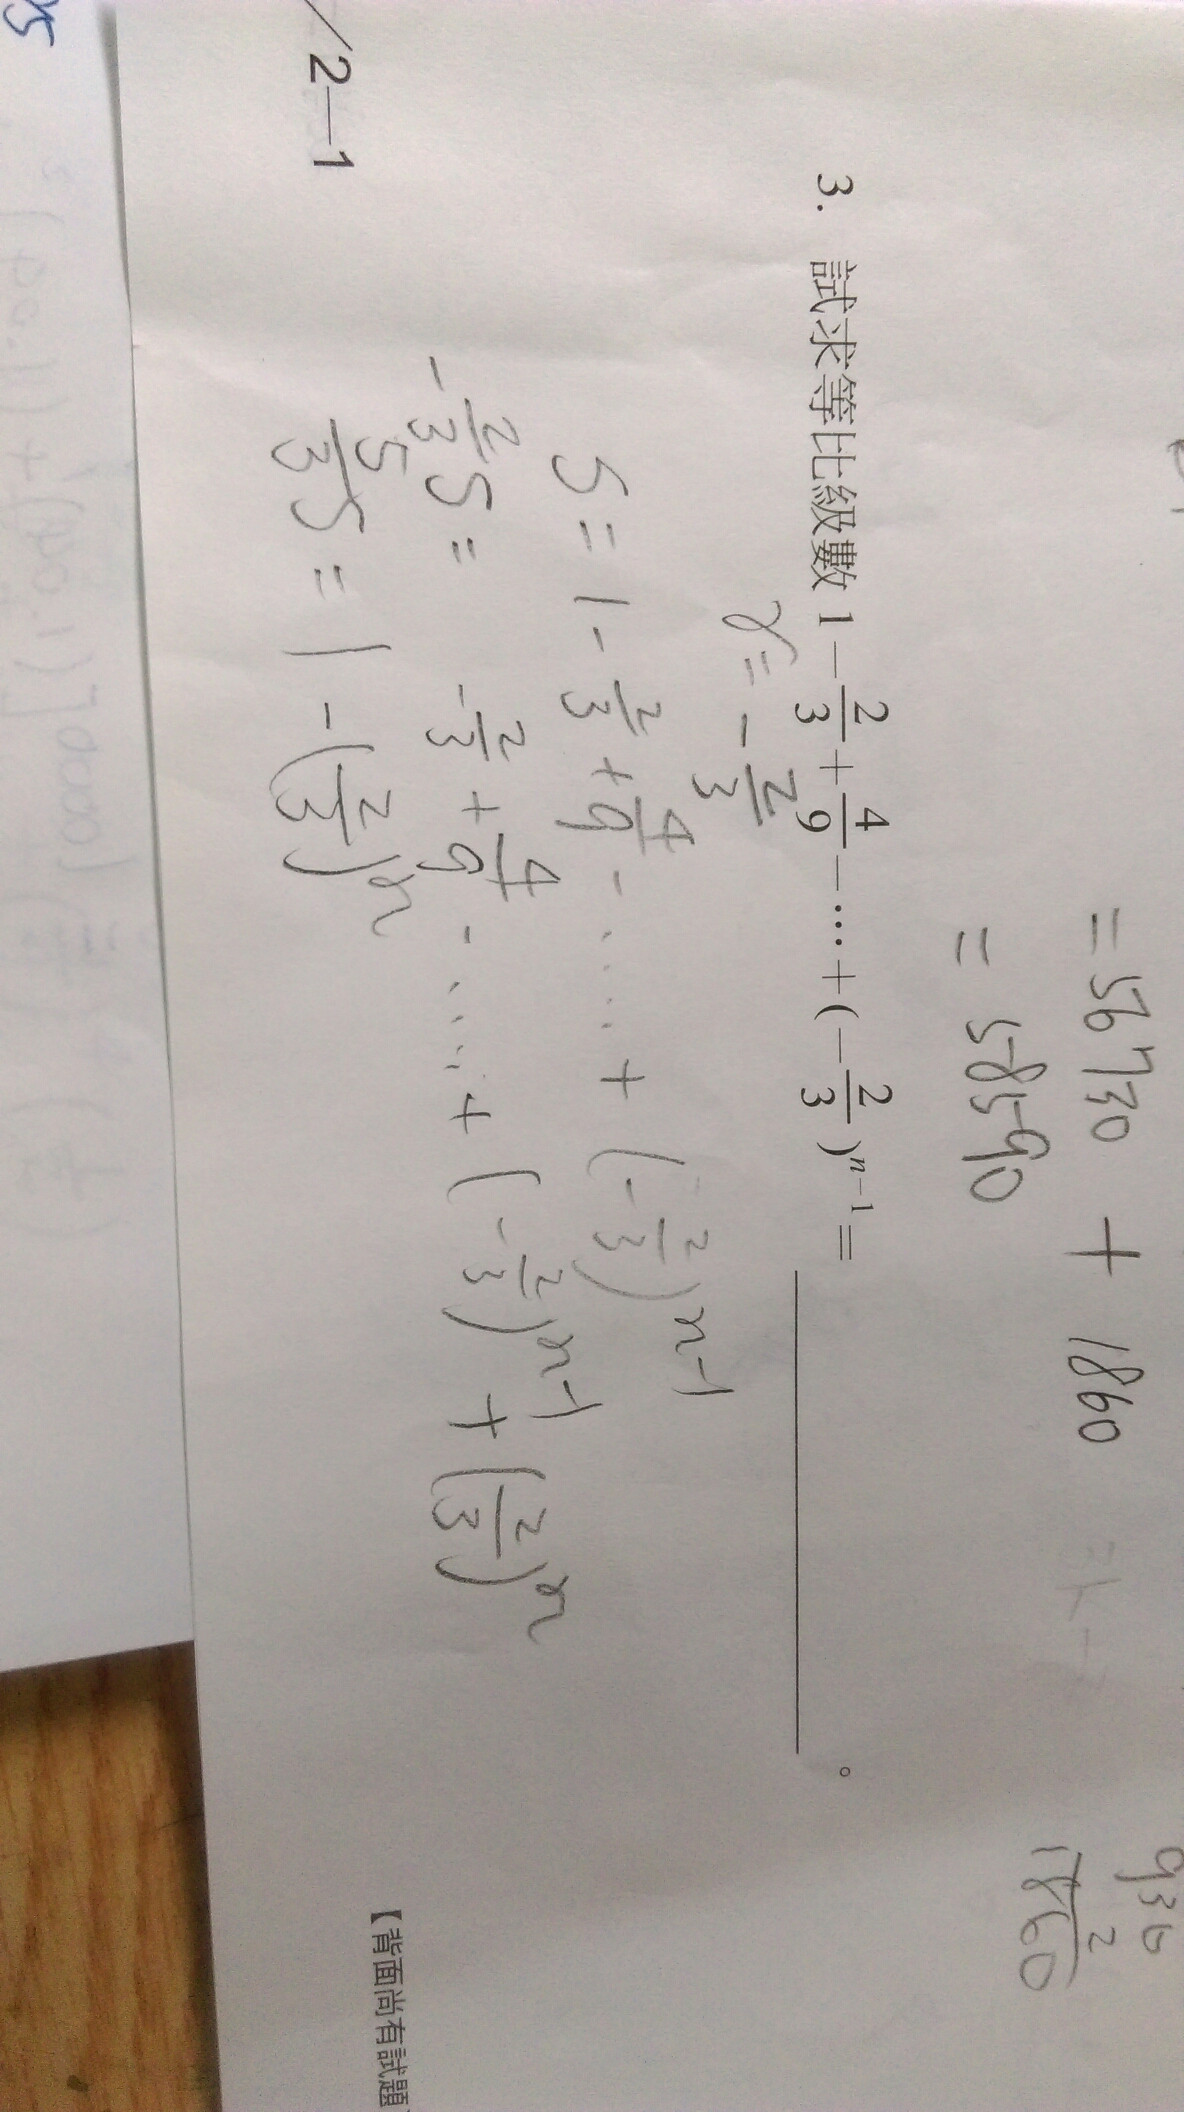 = 56730 + 1860
= 58590
930
2
1860
3. 試求等比級數 1−2/3+4/9−⋯+(−2/3)ⁿ⁻¹=＿＿＿＿＿＿。
r = -2/3
S = 1 - 2/3 + 4/9 - ... + (-2/3)ⁿ⁻¹
-2/3 S = -2/3 + 4/9 - ... + (-2/3)ⁿ⁻¹ + (2/3)ⁿ
5/3 S = 1 - (2/3)ⁿ
/2—1
【背面尚有試題